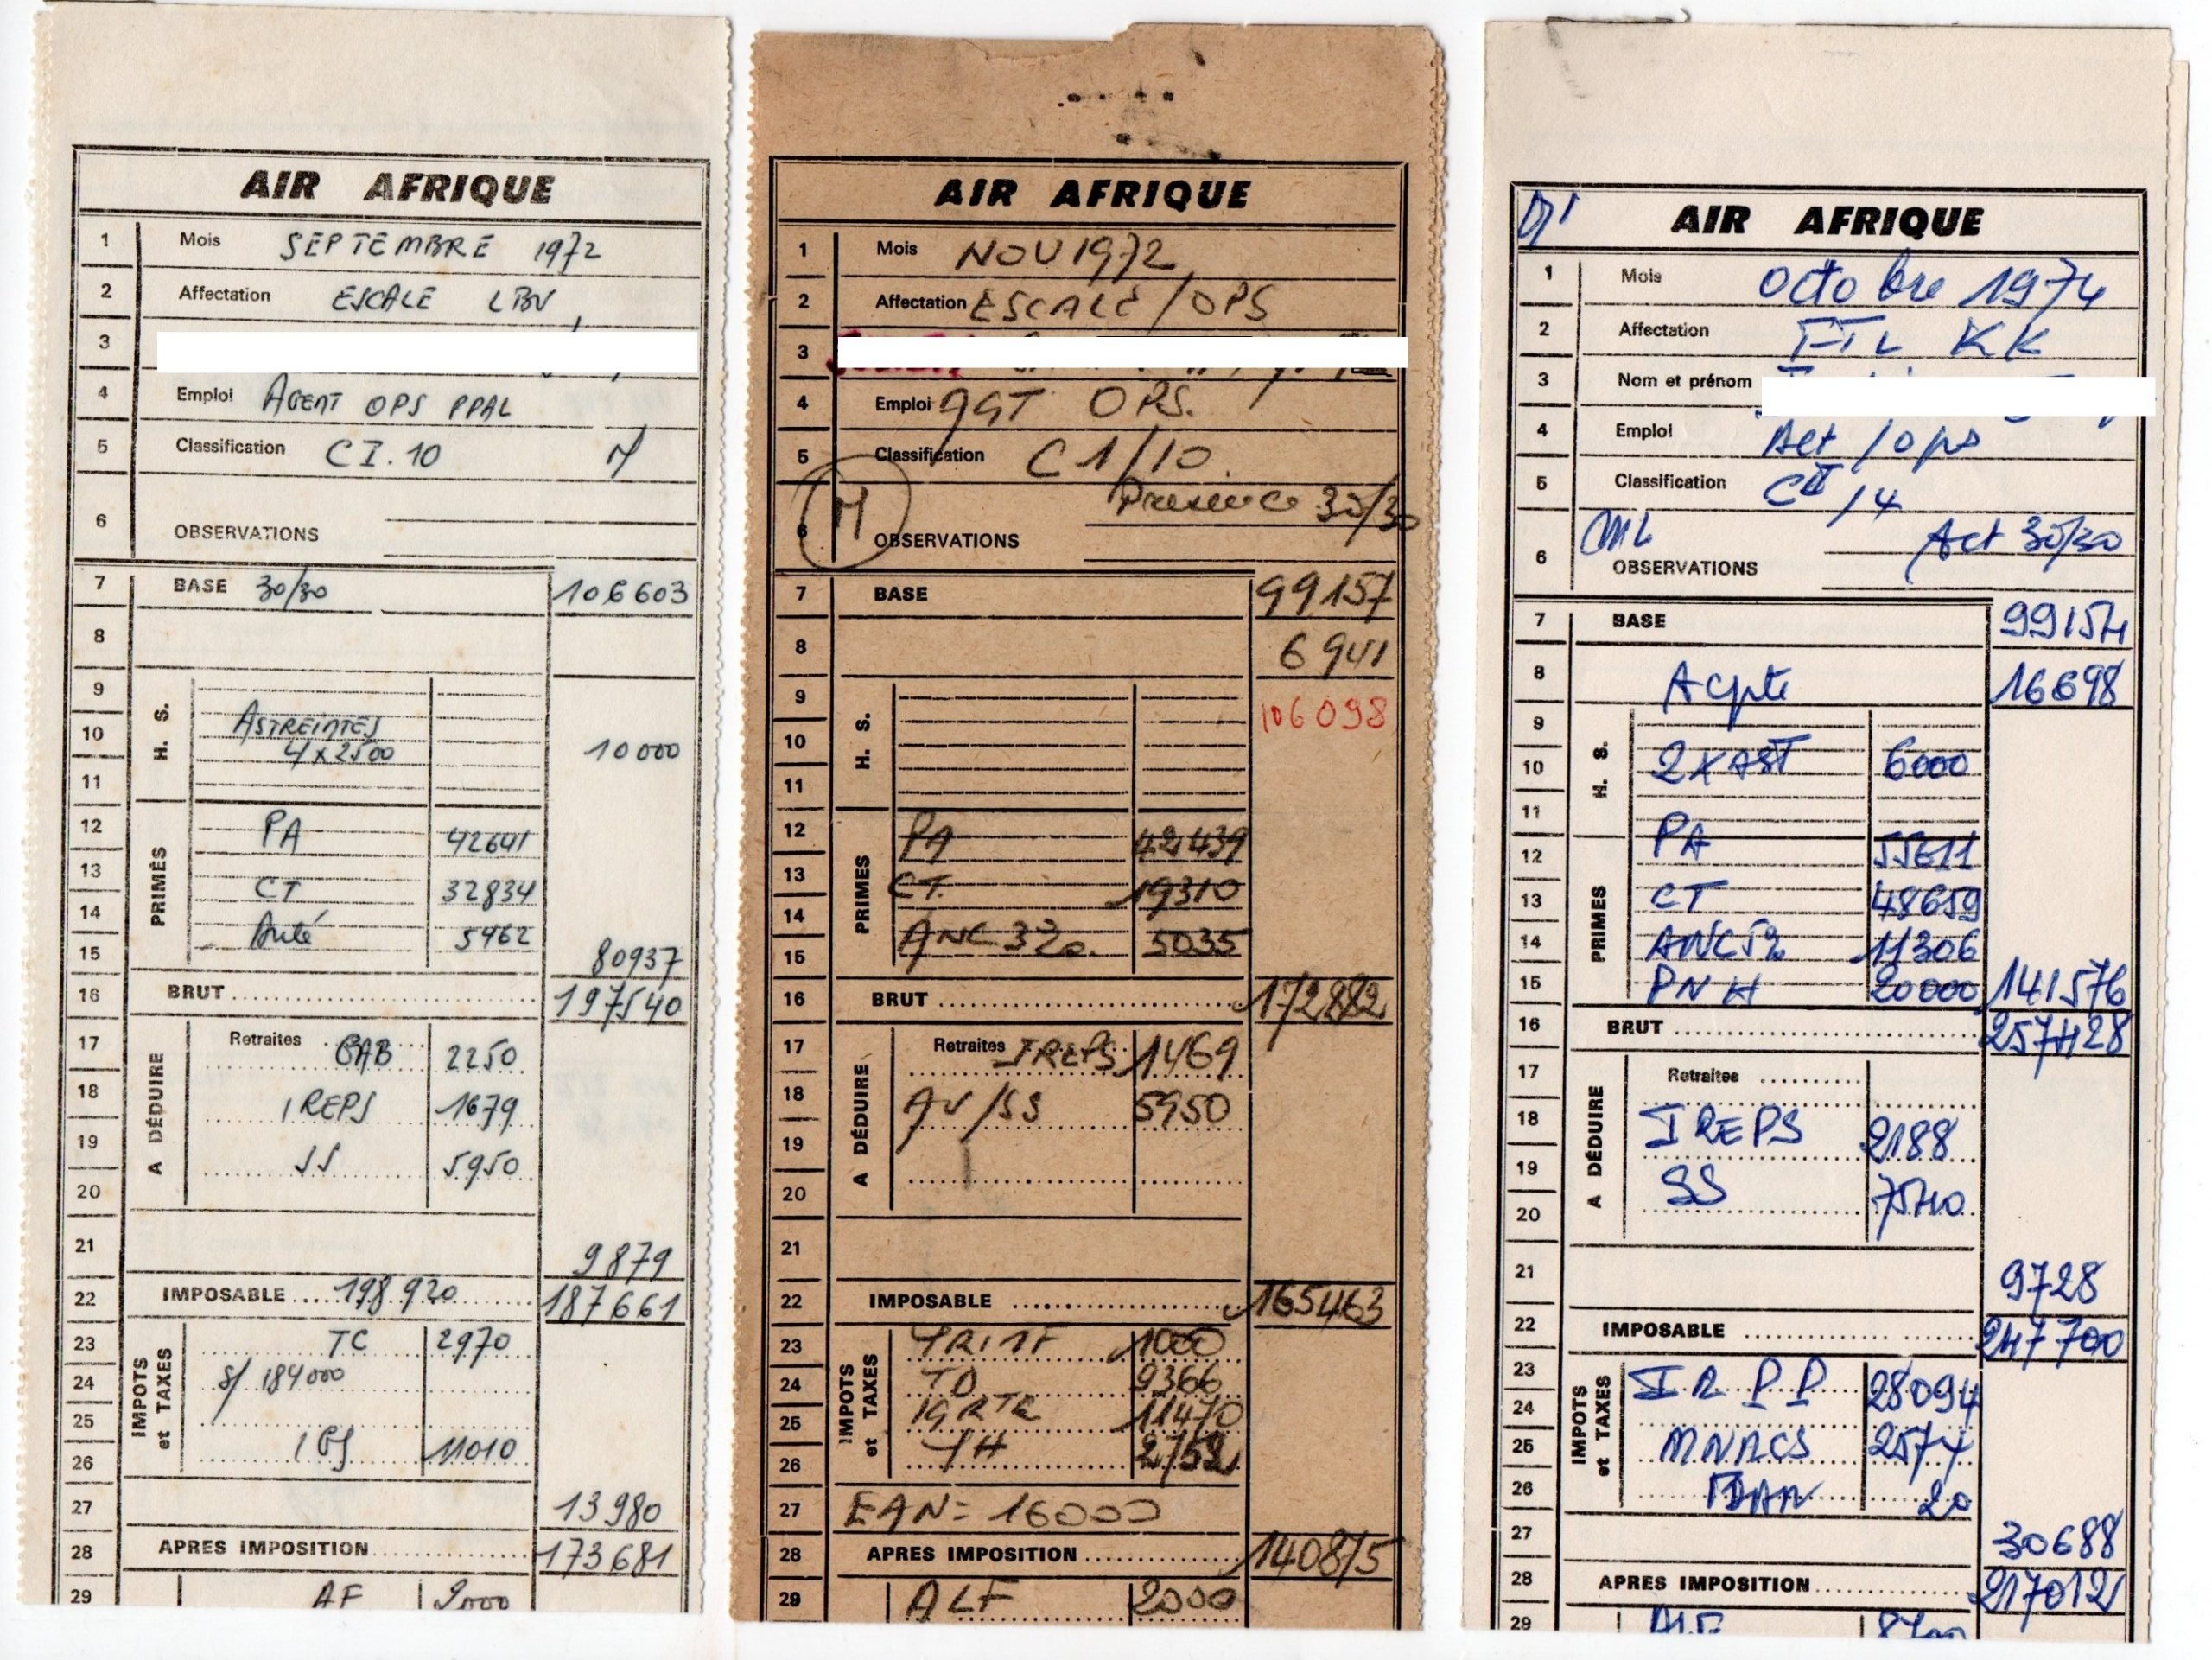 AIR AFRIQUE
1 Mois SEPTEMBRE 1972
2 Affectation ESCALE LBV
3
4 Emploi AGENT OPS PPAL
5 Classification CI.10 M
6 OBSERVATIONS
7 BASE 30/30 106603
8
9
H. S.
10 ASTREINTES
4x2500 10000
11
PRIMES
12 PA 42641
13 CT 32834
14 Anté 5462
15 80937
16 BRUT 197540
A DÉDUIRE
17 Retraites GAB 2250
18 IREPS 1679
19 SS 5950
20
21 9879
22 IMPOSABLE 198920 187661
IMPOTS et TAXES
23 TC 2970
24 S/ 184000
25
26 IGS 11010
27 13980
28 APRES IMPOSITION 173681
29 AF 2000
AIR AFRIQUE
1 Mois NOV 1972
2 Affectation ESCALE / OPS
3
4 Emploi AGT OPS.
5 Classification C1/10.
Presence 30/30
M
6 OBSERVATIONS
7 BASE 99157
8 6941
9 106098
H. S.
10
11
PRIMES
12 PA 42439
13 CT. 19310
14 ANC 3%. 5035
15
16 BRUT 172882
A DÉDUIRE
17 Retraites IREPS 1469
18 AV/SS 5950
19
20
21
22 IMPOSABLE 165463
IMPOTS et TAXES
23 1000
24 TD 9366
25 11470
26 2752
27 EAN = 16000
28 APRES IMPOSITION 140875
29 ALF 2000
AIR AFRIQUE
1 Mois Octobre 1974
2 Affectation FTL KK
3 Nom et prénom
4 Emploi Act / Ops
5 Classification CII/4
ML Act 30/30
6 OBSERVATIONS
7 BASE 99154
8 Acpte 16698
9
H. S.
10 2XAST 6000
11
PRIMES
12 PA 55611
13 CT 48659
14 ANC 5% 11306
15 PNH 20000 141576
16 BRUT 257428
A DÉDUIRE
17 Retraites
18 IREPS 2188
19 SS 7540
20
21 9728
22 IMPOSABLE 247700
IMPOTS et TAXES
23 IRPP 28094
24
25 MNACS 2574
26 20
27 30688
28 APRES IMPOSITION 217012
29 ALF